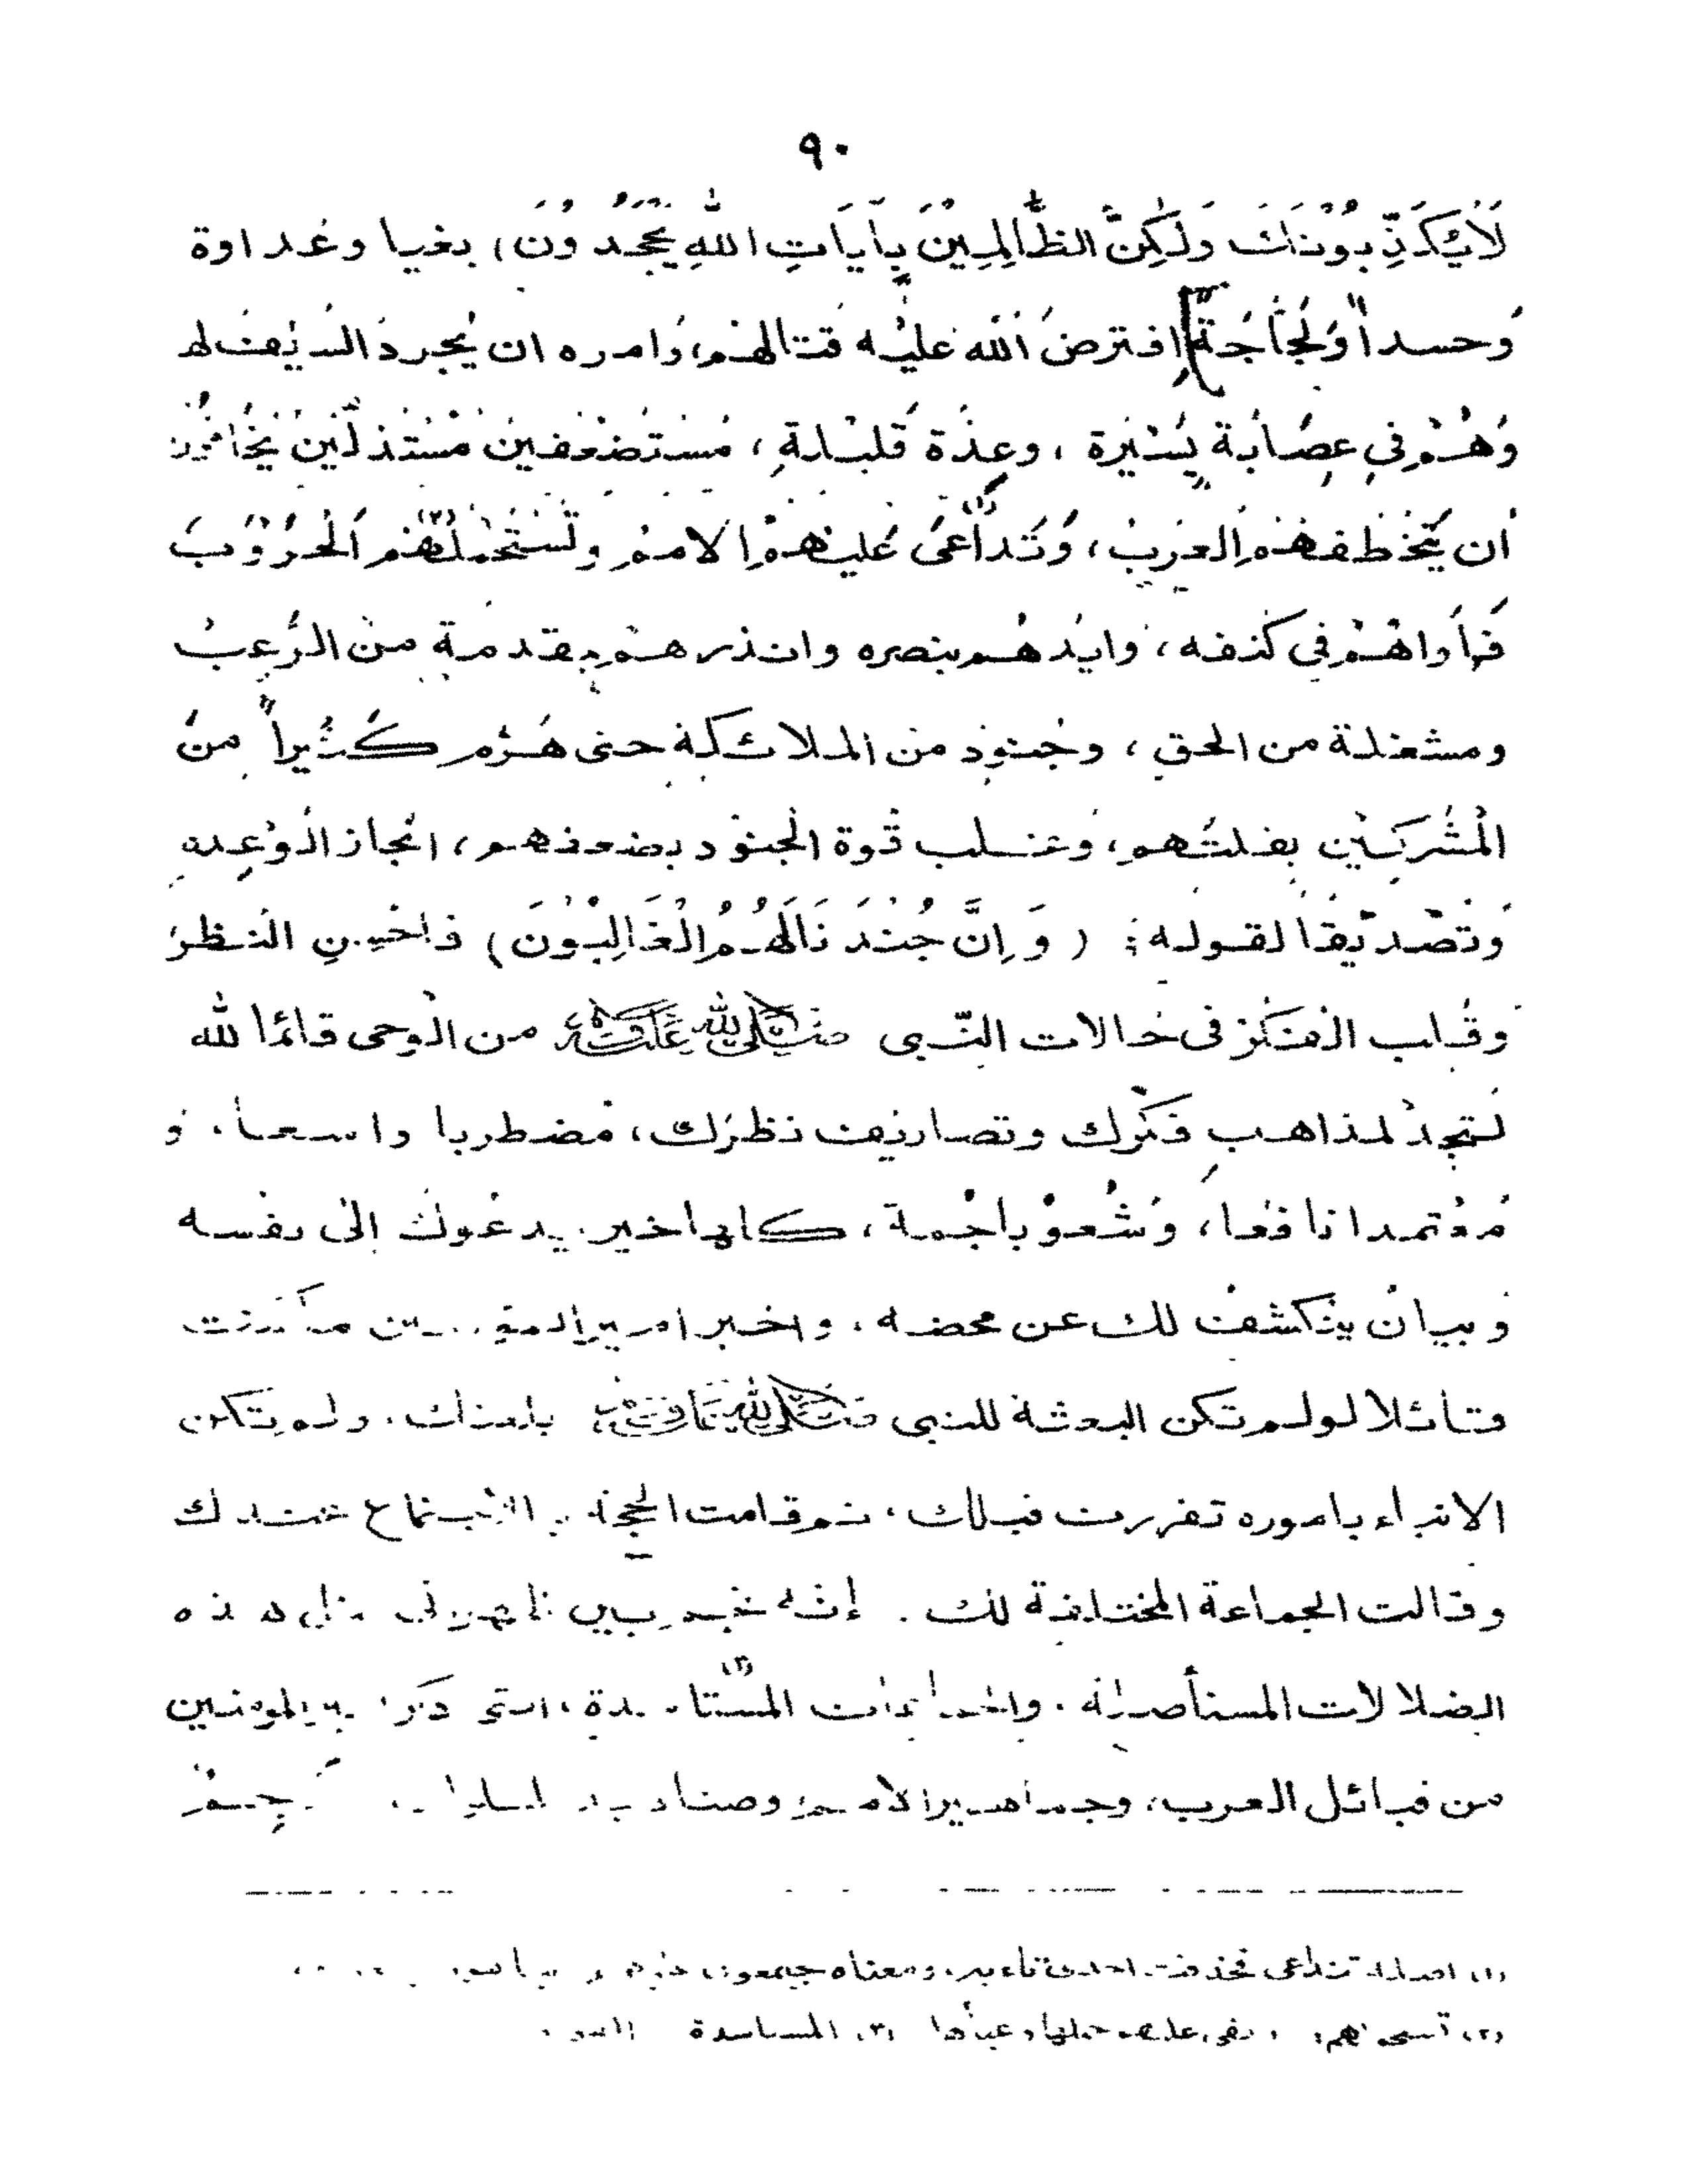 ٩٠
لَا يُكَذِّبُونَكَ وَلَكِنَّ الظَّالِمِينَ بِآيَاتِ اللَّهِ يَجْحَدُونَ) بغيا وعداوة
وحسداً ولجاجة افترض الله عليه قتالهم، وامره ان يجرد السيف لهم
وهم في عصابة يسيرة، وعدة قليلة، مستضعفين مستذلين يخافون
أن يتخطفهم العرب، وتداعى(١) عليهم الامم وتستحملهم(٢) الحروب
فآواهم في كنفه، وايدهم بنصره وانذرهم بمقدمة من الرعب
ومشغلة من الحق، وجنود من الملائكة حتى هزم كثيراً من
المشركين بقلتهم، وغلب قوة الجنود بضعفهم، انجازا لوعده
وتصديقا لقوله: (وَإِنَّ جُنْدَنَا لَهُمُ الْغَالِبُونَ) فاحسن النظر
وقلب الفكر في حالات النبي صلى الله عليه وآله من الوحي قائما لله
لتجد لمذاهب فكرك وتصاريف نظرك، مضطربا واسعا، و
معتمدا نافعا، وشعوبا جمة، كلها خير يدعوك إلى نفسه
وبيان ينكشف لك عن محضه، واخبر امير
قائلا لو لم تكن البعثة للنبي بلغتك. ولم تكن
الانباء باموره تقررت قبلك، ثم قامت الحجة عندك
وقالت الجماعة المختلفة لك. إنه هذه
الضلالات المستأصلة. المستا(٣) المؤمنين
من قبائل العرب، وجماهير الامم وصناديد
(١) اصلها تتداعى فحذفت احدى تاءيه، ومعناه
(٢) حملها وعبأها (٣) المستاسدة